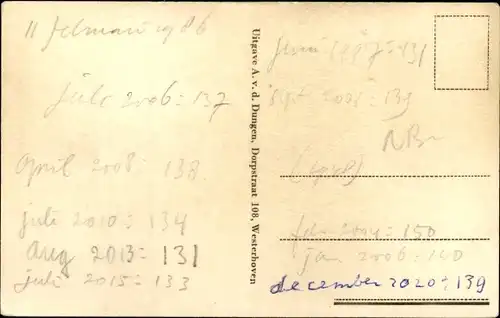 11 februari 1986
juli 2006 = 137
april 2008 = 138
juli 2010 = 134
aug 2013 = 131
juli 2015 = 133
Uitgave A. v. d. Dungen, Dorpstraat 108, Westerhoven
= 131
NBr
= 150
jan 2006 = 140
december 2020 = 139